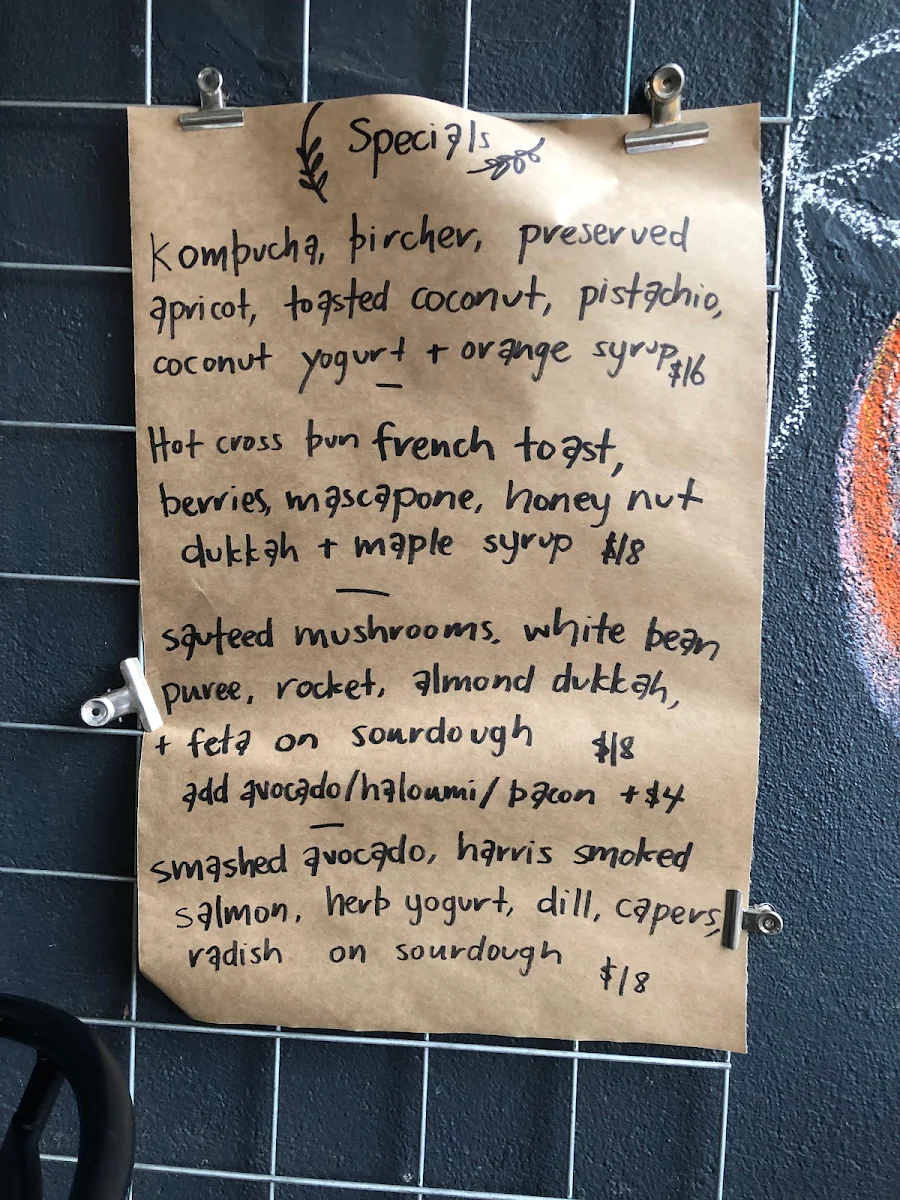 Specials
Kombucha, bircher, preserved
apricot, toasted coconut, pistachio,
coconut yogurt + orange syrup $16
Hot cross bun french toast,
berries, mascapone, honey nut
dukkah + maple syrup $18
sauteed mushrooms, white bean
puree, rocket, almond dukkah,
+ feta on sourdough $18
add avocado/haloumi/bacon +$4
smashed avocado, harris smoked
salmon, herb yogurt, dill, capers,
radish on sourdough $18